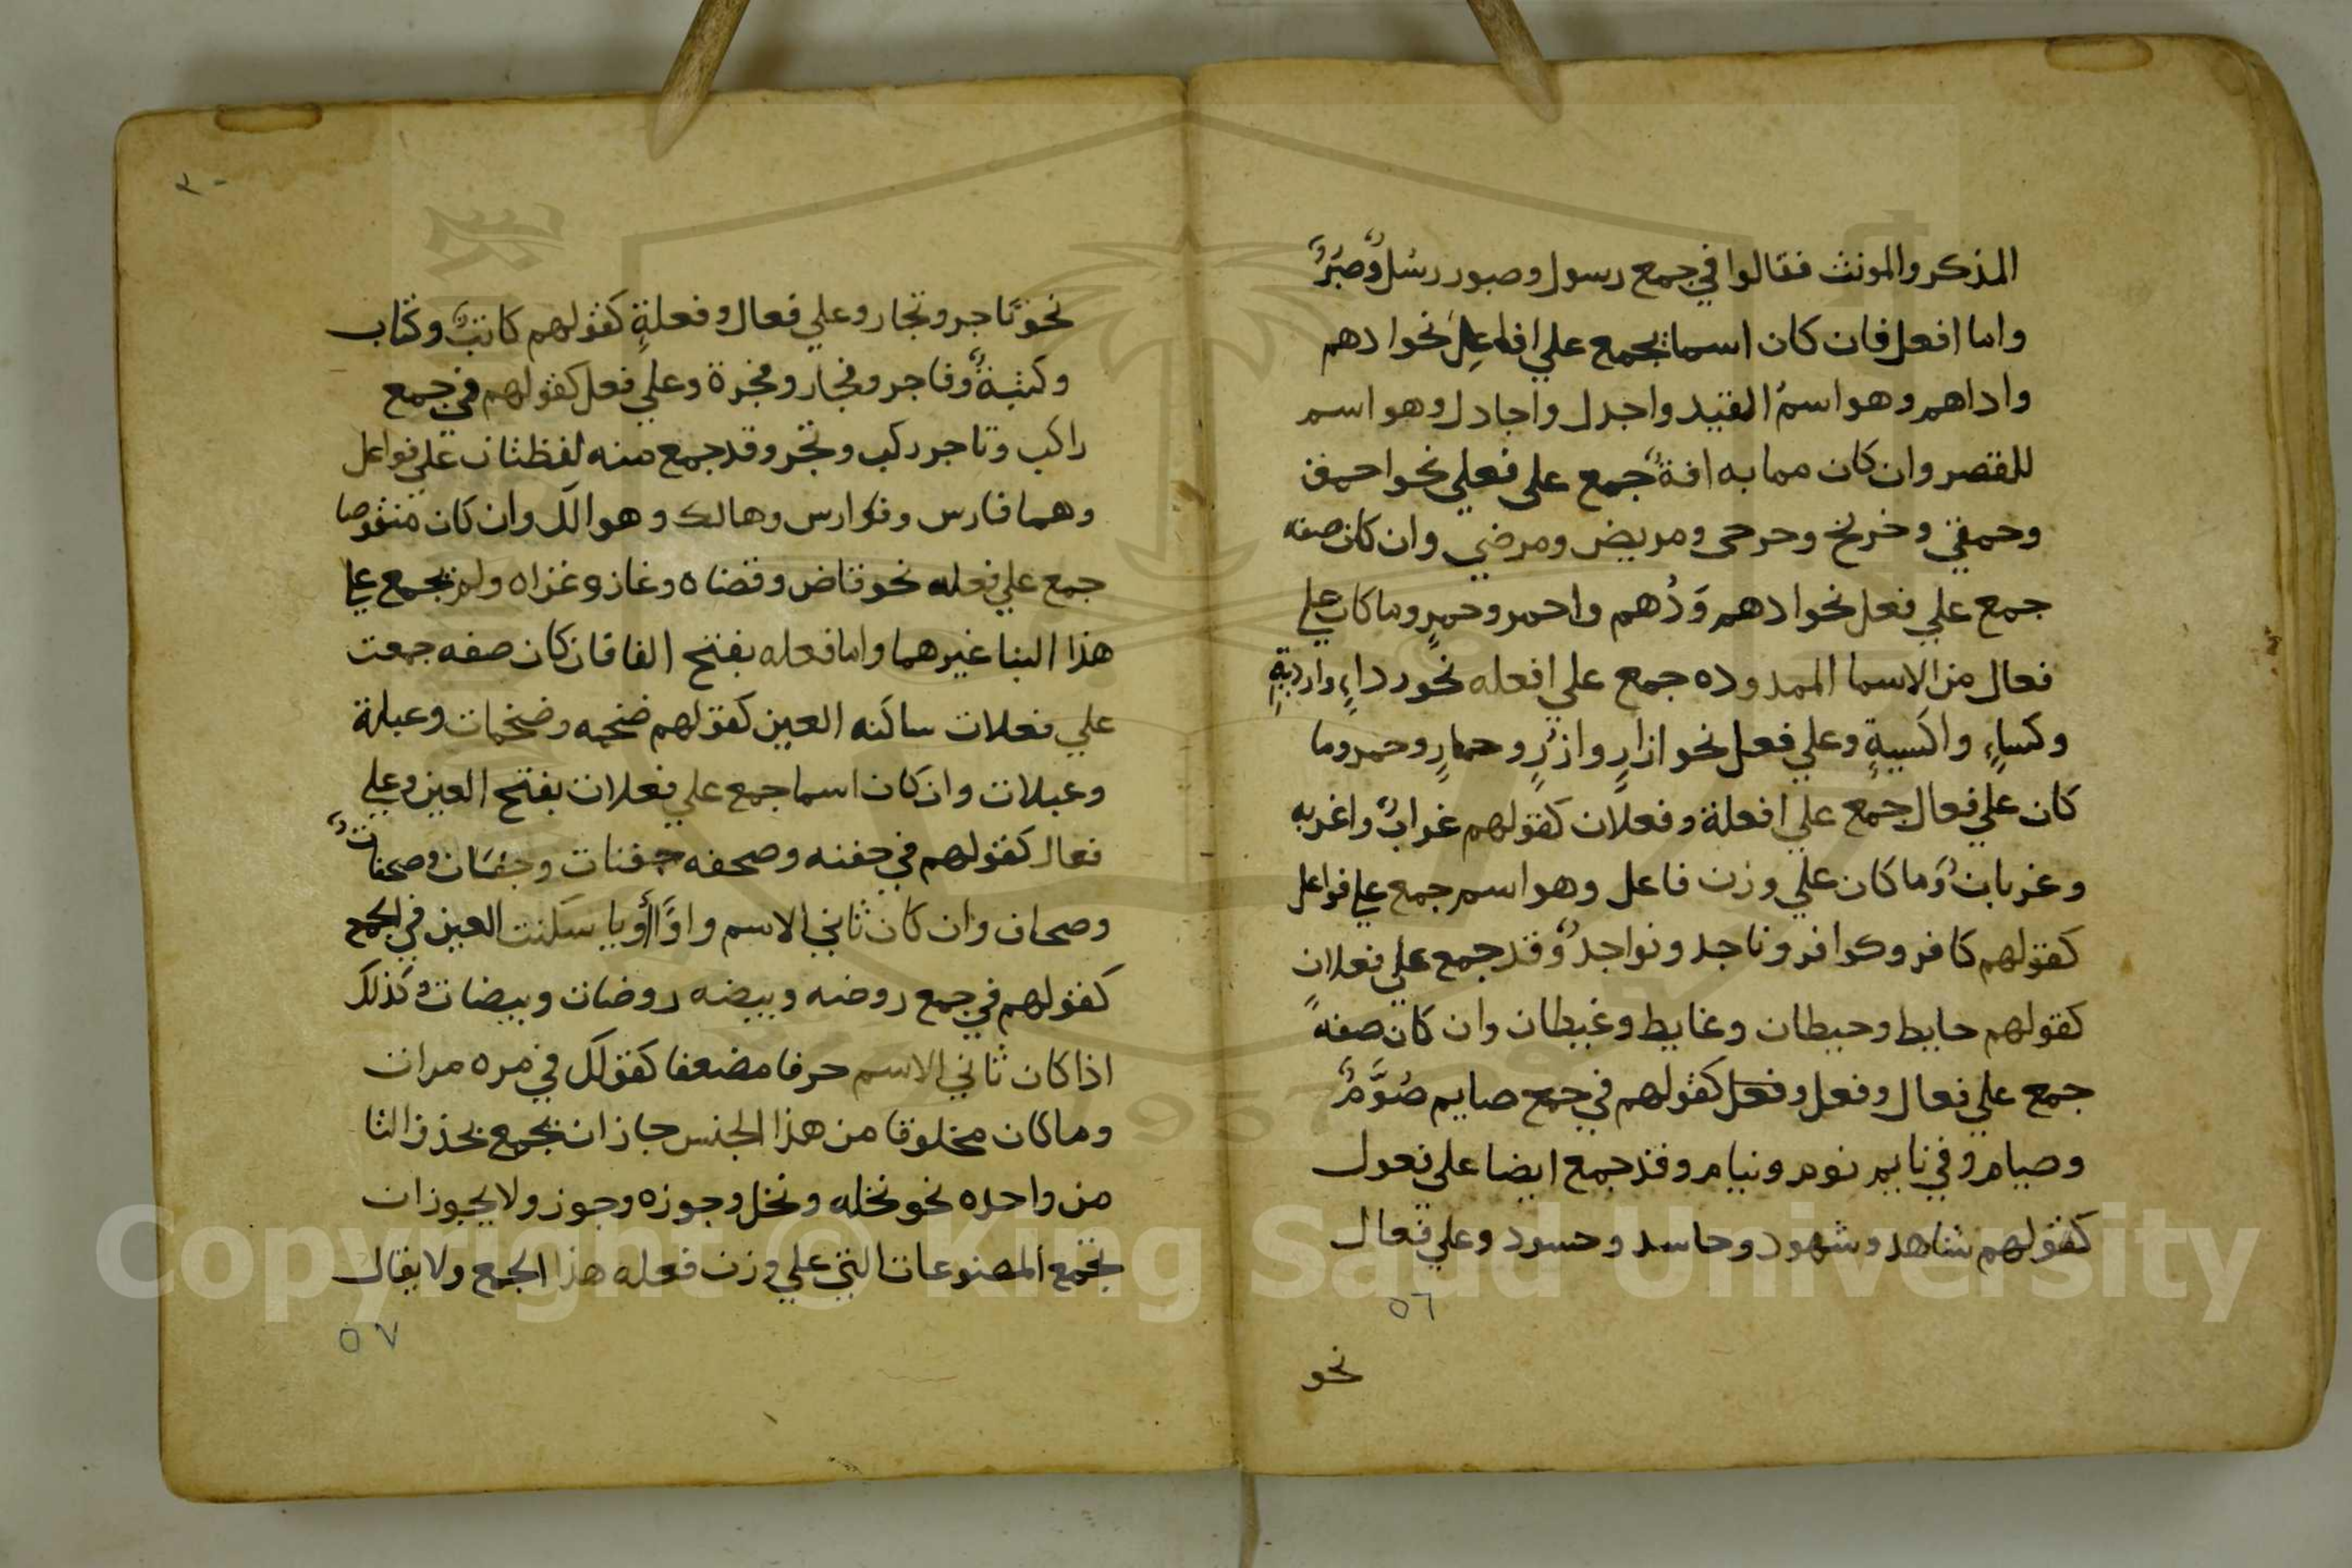 المذكر والمونث فقالوا في جمع رسول وصبور رسُلٌ وصبُرٌ
واما افعل فان كان اسما يجمع علي افاعِل نحو ادهم
واداهم وهو اسمُ القيد واجدل واجادل وهو اسم
للقصر وان كان مما به افةٌ جمع علي فعلي نحو احمق
وحمقي وخريج وجرحى ومريض ومرضي وان كان صفه
جمع علي فعل نحو ادهم وَدُهم واحمر وحمرٍ وما كان علي
فعال من الاسما الممدوده جمع علي افعله نحو رداءٍ وارديةٍ
وكساءٍ واكسيةٍ وعلي فعل نحو ازارٍ وازرٍ وحمارٍ وحمر وما
كان علي فعال جمع علي افعلة وفعلان كقولهم غرابٌ واغربه
وغربانٌ وما كان علي وزن فاعل وهو اسم جمع علي فواعل
كقولهم كافر وكوافر وناجد ونواجدٌ وقد جمع علي فعلان
كقولهم حايط وحيطان وغايط وغيطان وان كان صفةً
جمع علي فعال وفعل وفعل كقولهم في جمع صايم صُوَّمٌ
وصيام وفي نايم نوم ونيام وقد جمع ايضا علي فعول
كقولهم شاهد وشهود وحاسد وحسود وعلي فعال
٥٦
نحو
٣٠
نحو تاجر وتجار وعلي فعال وفعلةٍ كقولهم كاتبٌ وكتاب
وكتبةٌ وفاجر وفجار وفجرة وعلي فعل كقولهم في جمع
راكب وتاجر ركب وتجر وقد جمع منه لفظتان علي فواعل
وهما فارس وفوارس وهالك وهوالك وان كان منقوصا
جمع علي فعله نحو قاض وقضاه وغاز وغزاه ولم يجمع علي
هذا البنا غيرهما واما فعله بفتح الفا فان كان صفه جمعت
علي فعلات ساكنه العين كقولهم ضخمه وضخمات وعبلة
وعبلات وان كان اسما جمع علي فعلات بفتح العين وعلي
فعال كقولهم في جفنه وصحفه جفنات وجفان وصحفاتٌ
وصحاف وان كان ثاني الاسم واوًا أو يا سكنت العين في الجمع
كقولهم في جمع روضه وبيضه روضات وبيضات وكذلك
اذا كان ثاني الاسم حرفا مضعفا كقولك في مره مرات
وما كان مخلوقا من هذا الجنس جاز ان يجمع بحذف التا
من واحده نحو نخله ونخل وجوزه وجوز ولا يجوز ان
تجمع المصنوعات التي علي وزن فعله هذا الجمع ولا يقال
٥٧
Copyright © King Saud University
1957